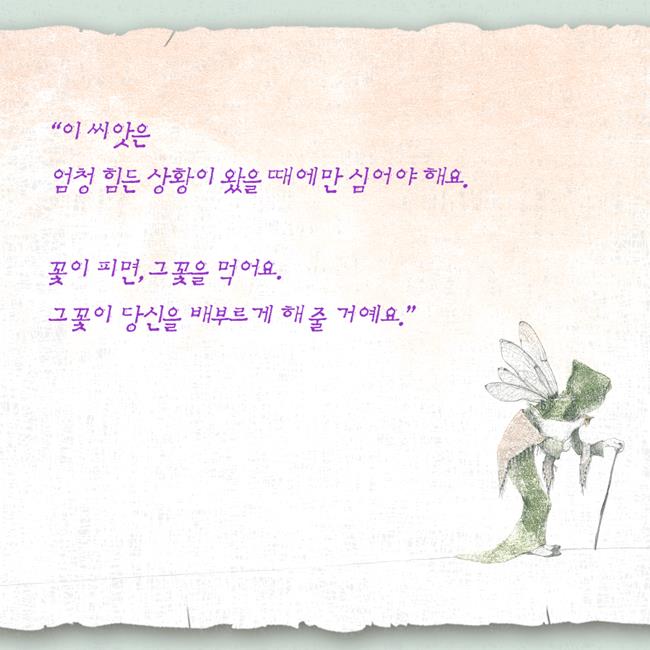 “이 씨앗은
엄청 힘든 상황이 왔을 때에만 심어야 해요.
꽃이 피면, 그 꽃을 먹어요.
그 꽃이 당신을 배부르게 해 줄 거예요.”